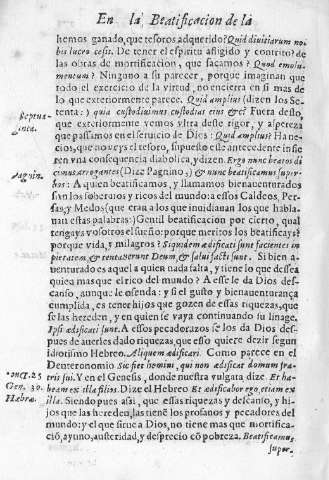 En la Beatificacion de la
hemos ganado, que tesoros adquerido? Quid diuitiarum no-
bis lucro cesit. De tener el espiritu afligido y contrito? de
las obras de mortificacion, que sacamos? Quod emolu-
mentum? Ninguno a su parecer, porque imaginan que
todo el exercicio de la virtud, no encierra en si mas de
lo que exteriormente parece. Quid amplius (dizen los Se-
Septua- tenta:) quia custodiuimus custodias eius &c? Fuera desso,
inta. que exteriormente vemos vltra desto rigor, y aspereza
que passamos en el seruicio de Dios: Quid amplius? Ha ne-
cios, que no veys el tesoro, supuesto este antecedente infie
ren vna consequencia diabolica, y dizen. Ergo nunc beatos di-
Pagnin. cimus arrogantes (Dize Pagnino,) & nunc beatificamus super-
bos: A quien beatificamos, y llamamos bienauenturados
son los soberuios y ricos del mundo: a essos Caldeos, Per-
sas, y Medos (que eran a los que inuidiauan los que habla-
man estas palabras:) Gentil beatificacion por cierto, qual
tengays vosotros el sueño: porque meritos los beatificays?
porque vida, y milagros? Siquidem ædificati sunt facientes im
pietatem & tentauerunt Deum, & salui facti sunt. Si bien a-
uenturado es aquel a quien nada falta, y tiene lo que dessea
quien mas que el rico del mundo? A esse le da Dios des-
canso, aunque le ofenda: y si el gusto y bienauenturança
cumplida, es tener hijos que gozen de essas riquezas, que
se las hereden, y en quien se vaya continuando su linage.
Ipsi ædificati sunt. A essos pecadorazos se los da Dios des-
pues de auerles dado riquezas, que esso quiere dezir segun
idiotismo Hebreo. Aliquem ædificari. Como parece en el
Deuteronomio Sic fiet homini, qui non ædificat domum fra-
tris sui. Y en el Genesis, donde nuestra vulgata dize. Et ha-
Gen. 30. beam ex illa filios. Dize el Hebreo Et ædificabor ego, etiam ex
Hebræ. illa. Siendo pues assi, que essas riquezas y descanso, y hi-
jos que las hereden, las tiene los profanos y pecadores del
mundo: y el que sirue a Dios, no tiene mas que mortifica-
ciō, ayuno, austeridad, y desprecio cō pobreza. Beatificamus
super-